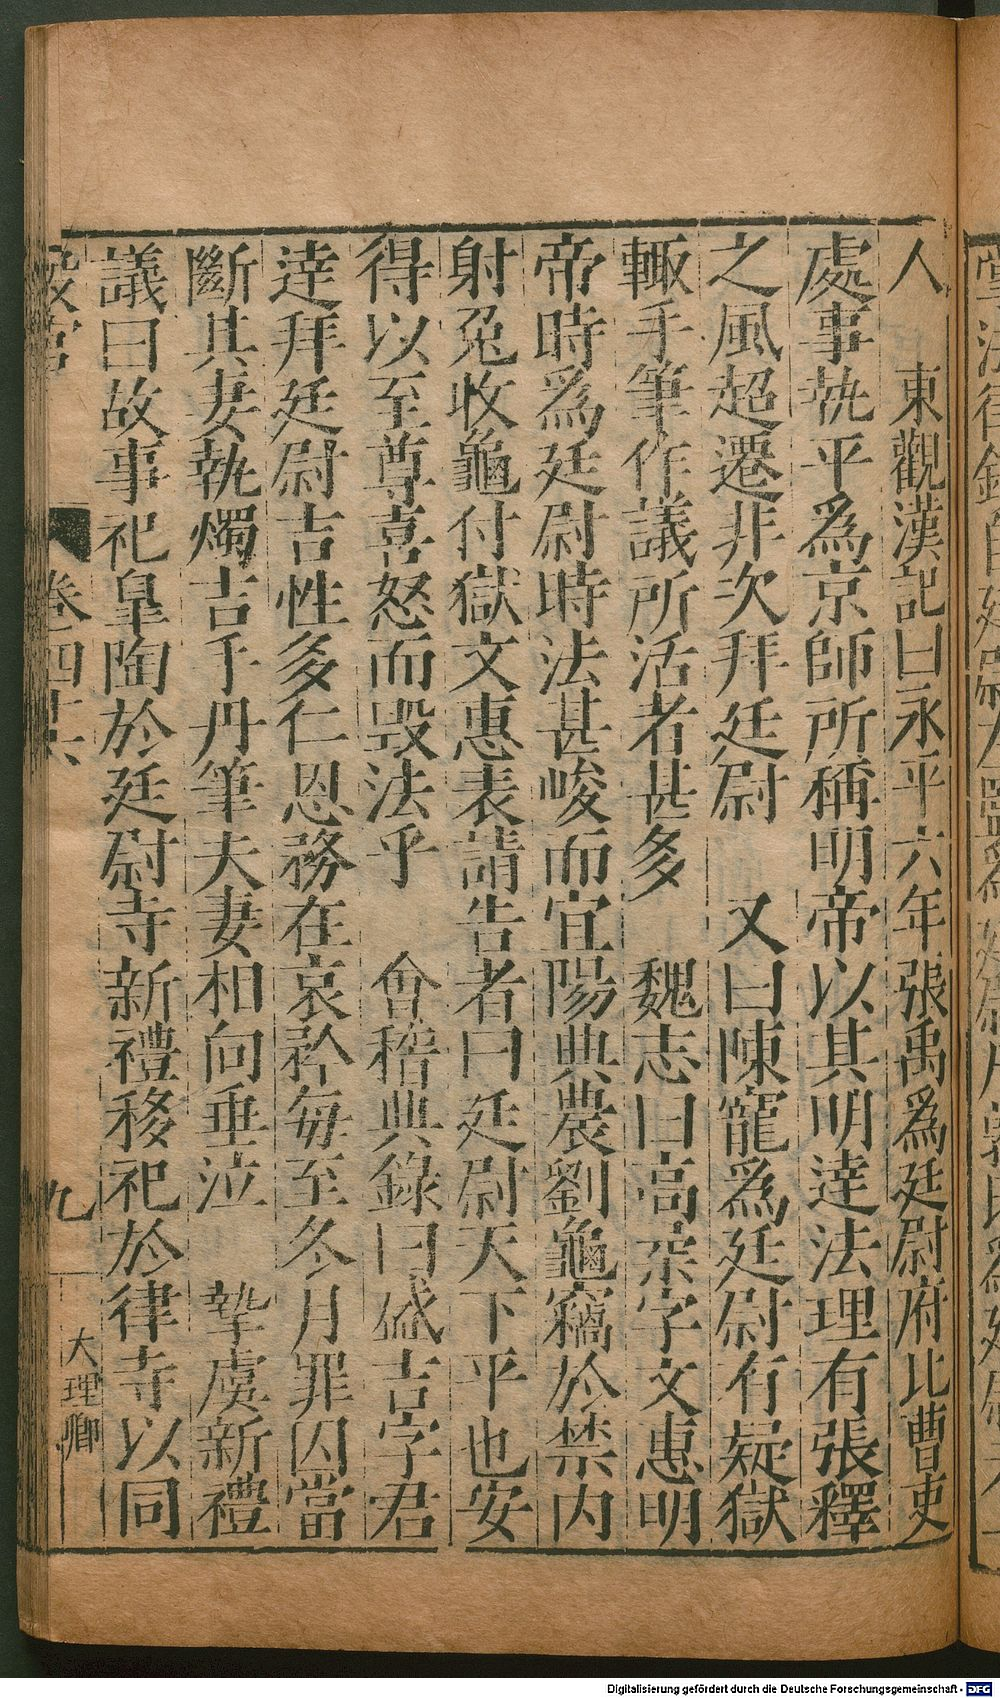 人　東觀漢記曰永平六年張禹爲廷尉府比曹吏
處事執平爲京師所稱明帝以其明達法理有張釋
之風超遷非次拜廷尉　又曰陳寵爲廷尉有疑獄
輙手筆作議所活者甚多　魏志曰高柔字文惠明
帝時爲廷尉時法甚峻而宜陽典農劉龜竊於禁内
射兔收龜付獄文惠表請告者曰廷尉天下平也安
得以至尊喜怒而毀法乎　會稽典錄曰盛吉字君
達拜廷尉吉性多仁恩務在哀矜每至冬月罪囚當
斷其妻執燭吉手丹筆夫妻相向垂泣　摯虞新禮
議曰故事祀皐陶於廷尉寺新禮移祀於律寺以同
設官
卷四十六
九
大理卿
Digitalisierung gefördert durch die Deutsche Forschungsgemeinschaft - DFG